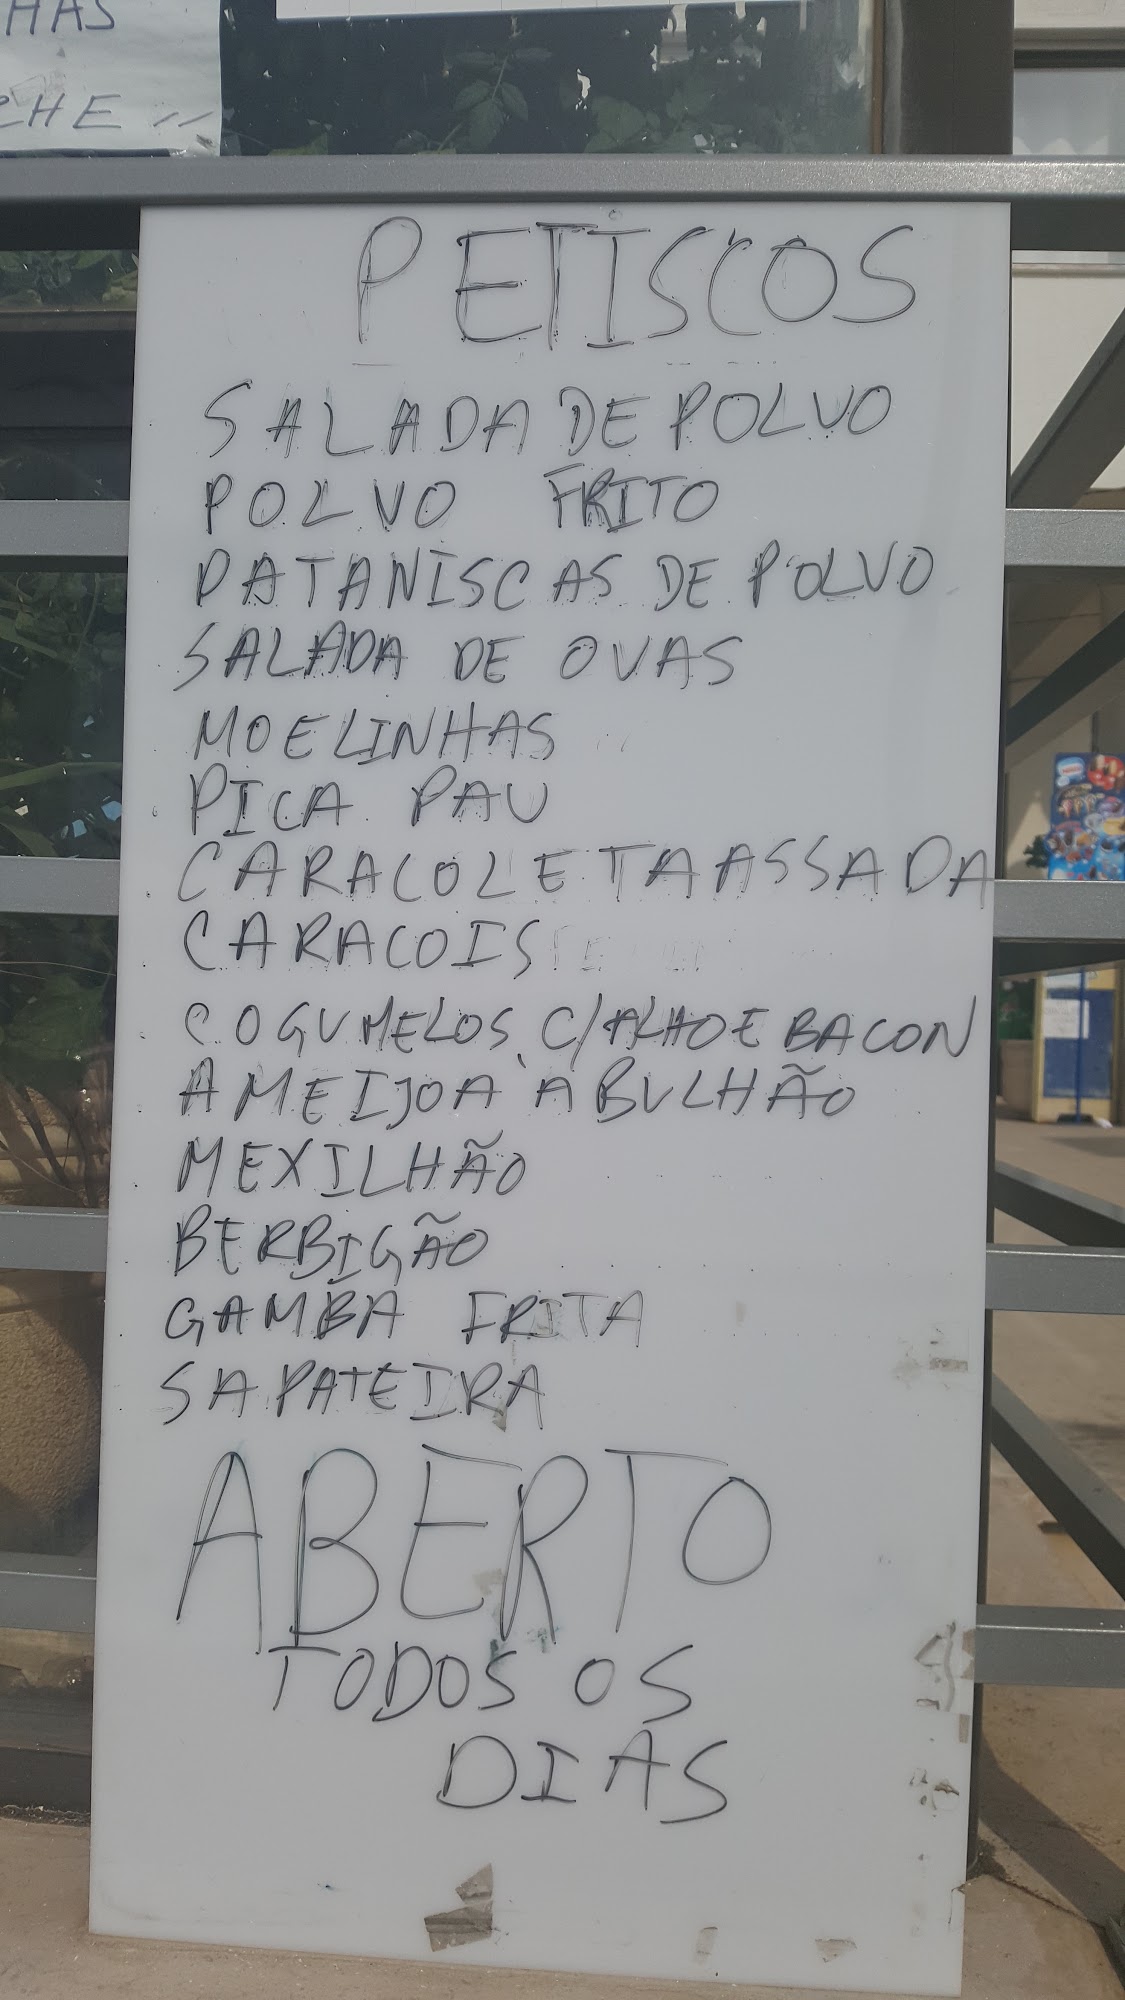 HAS
CHE
PETISCOS
SALADA DE POLVO
POLVO FRITO
PATANISCAS DE POLVO
SALADA DE OVAS
MOELINHAS
PICA PAU
CARACOLETA ASSADA
CARACOIS
COGUMELOS C/ALHO E BACON
AMEIJOA À BULHÃO
MEXILHÃO
BERBIGÃO
GAMBA FRITA
SAPATEIRA
ABERTO
TODOS OS
DIAS